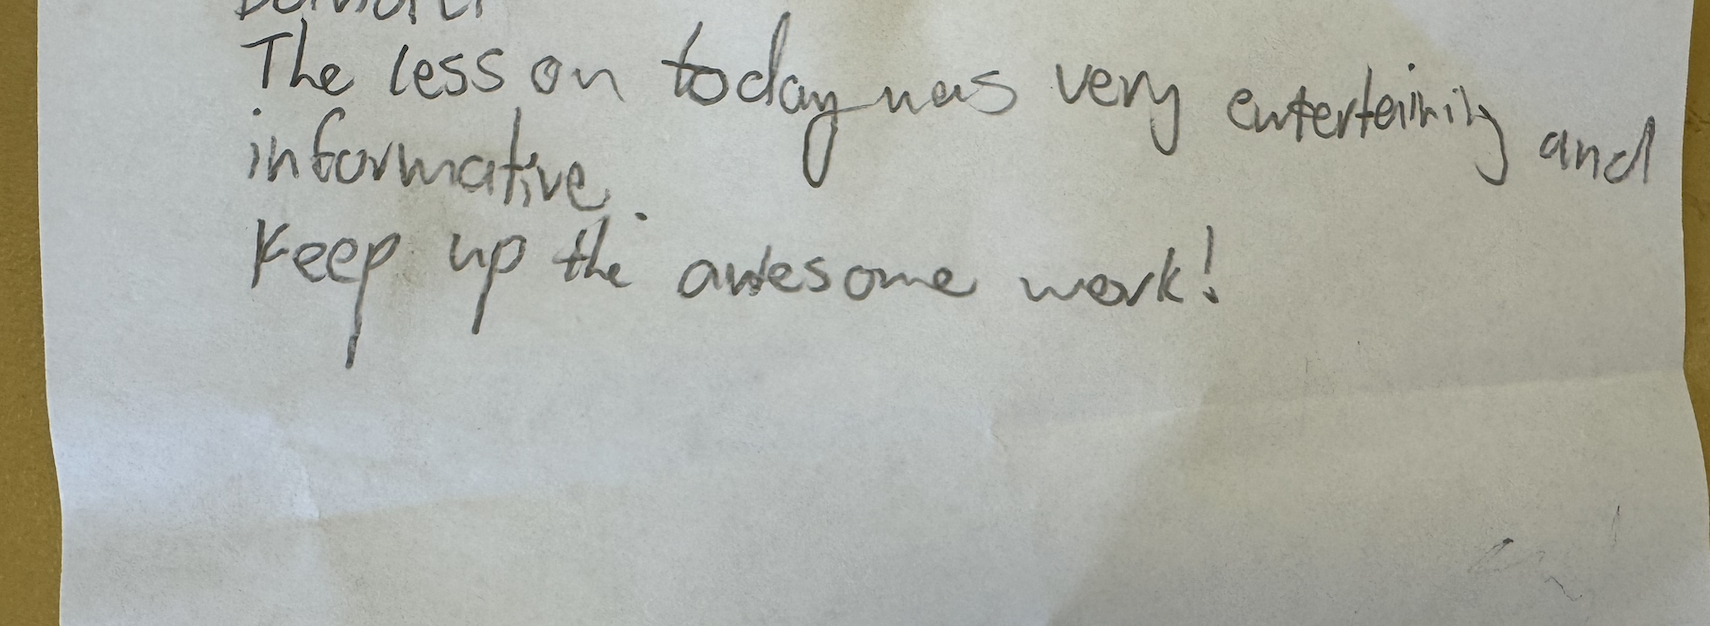 The lesson today was very entertaining and
informative.
Keep up the awesome work!